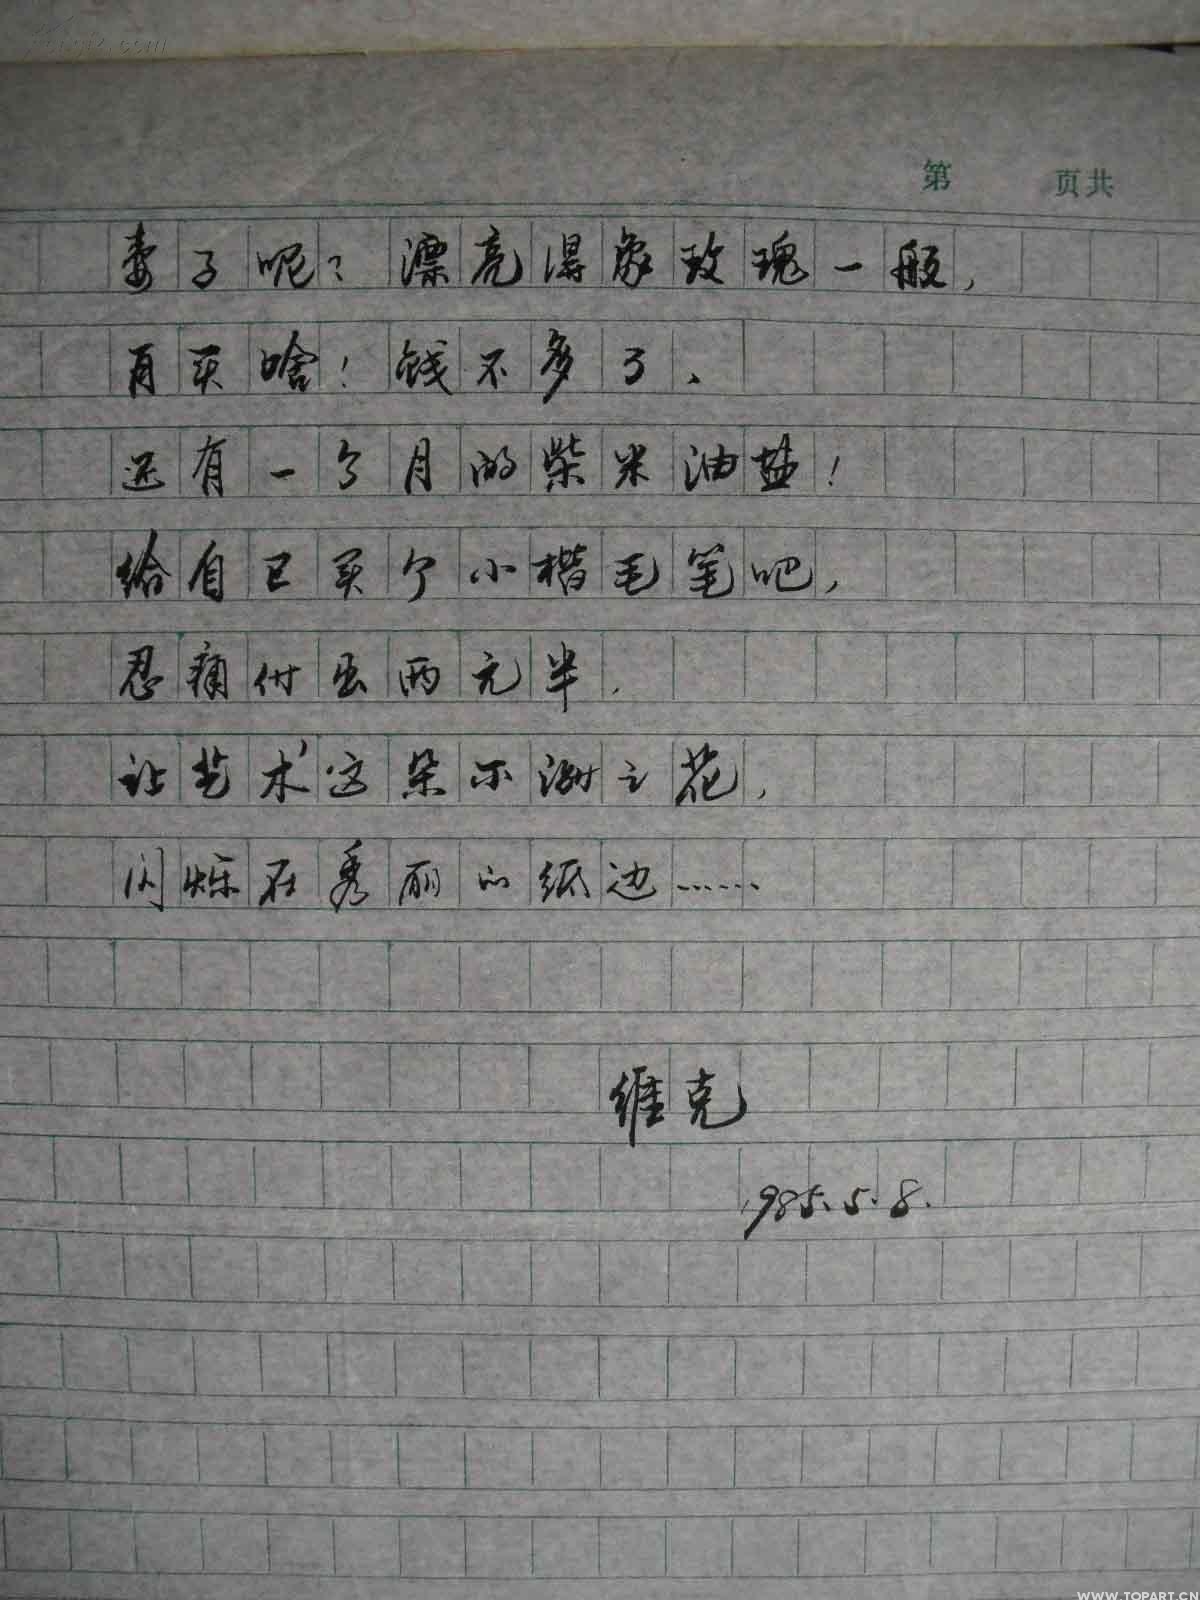 第 页共
妻子呢？漂亮得象玫瑰一般，
再买啥！钱不多了、
还有一个月的柴米油盐！
给自己买个小楷毛笔吧，
忍痛付出两元半．
让艺术这朵不谢之花，
闪烁在秀丽的纸边……
维克
1985.5.8.
WWW.TOPART.CN